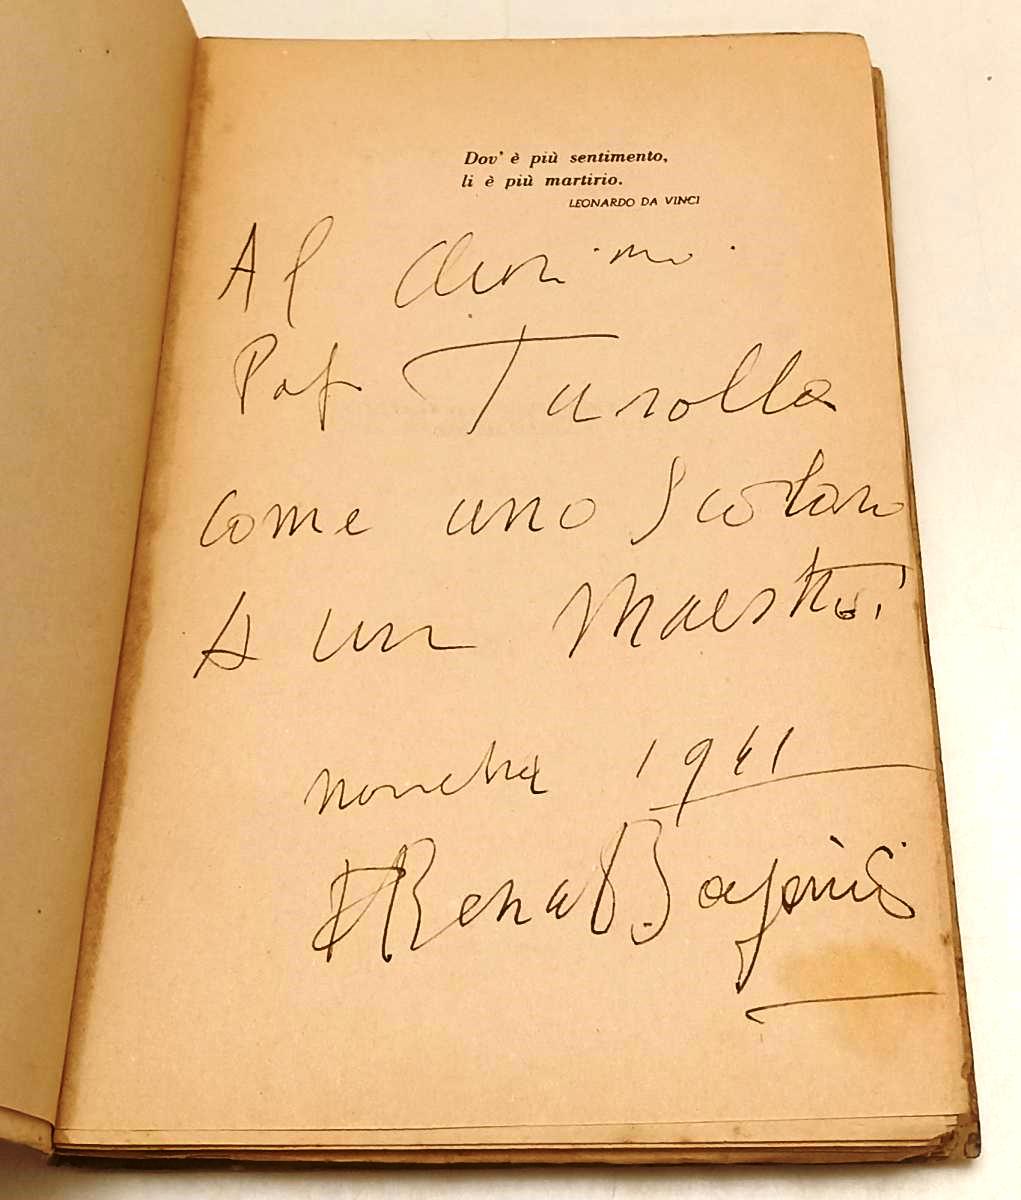 Dov' è più sentimento,
lì è più martirio.
LEONARDO DA VINCI
Al
Prof Turolla
come uno scolaro
A un Maestro!
novembre 1941